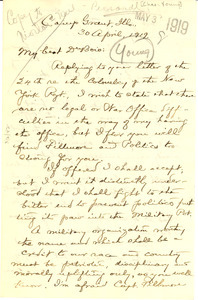 Camp Grant, Ills.
30 April, 1919
MAY 3
1919
My Dear Dr. Bois:
(Young)
Replying to your letter of the
24th re the Colonelcy of the New
York Regt, I wish to state that
there are no legal or War Office
in the way of my having
the office, but I fear you will
find Fillmore and Politics too
strong for you.
If offered I shall accept,
but I must it distinctly under-
stood that I shall fight to the
bitter end to prevent politics
its paw into the Military Regt.
A military organization worthy
the name and which shall be a
credit to our race and country
must be patriotic, disciplinary and
morally uplifting only, as you well
know. I am afraid Capt. Fillmore